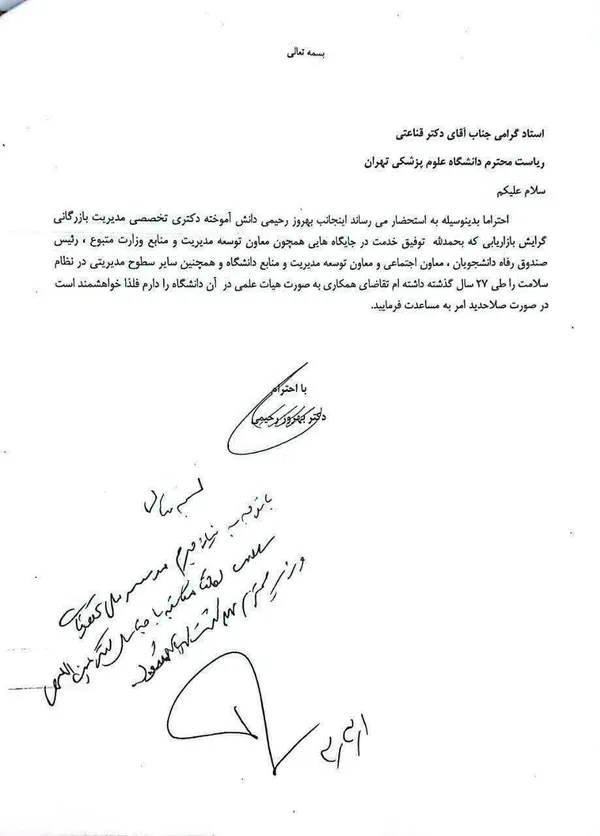 بسمه تعالی
استاد گرامی جناب آقای دکتر قناعتی
ریاست محترم دانشگاه علوم پزشکی تهران
سلام علیکم
احتراما بدینوسیله به استحضار می رساند اینجانب بهروز رحیمی دانش آموخته دکتری تخصصی مدیریت بازرگانی
گرایش بازاریابی که بحمدلله توفیق خدمت در جایگاه هایی همچون معاون توسعه مدیریت و منابع وزارت متبوع ، رئیس
صندوق رفاه دانشجویان ، معاون اجتماعی و معاون توسعه مدیریت و منابع دانشگاه و همچنین سایر سطوح مدیریتی در نظام
سلامت را طی ۲۷ سال گذشته داشته ام تقاضای همکاری به صورت هیات علمی در آن دانشگاه را دارم فلذا خواهشمند است
در صورت صلاحدید امر به مساعدت فرمایید.
با احترام
دکتر بهروز رحیمی
بسمه تعالی
با توجه به نیاز مبرم موسسه ملی تحقیقات
سلامت
وزیر محترم